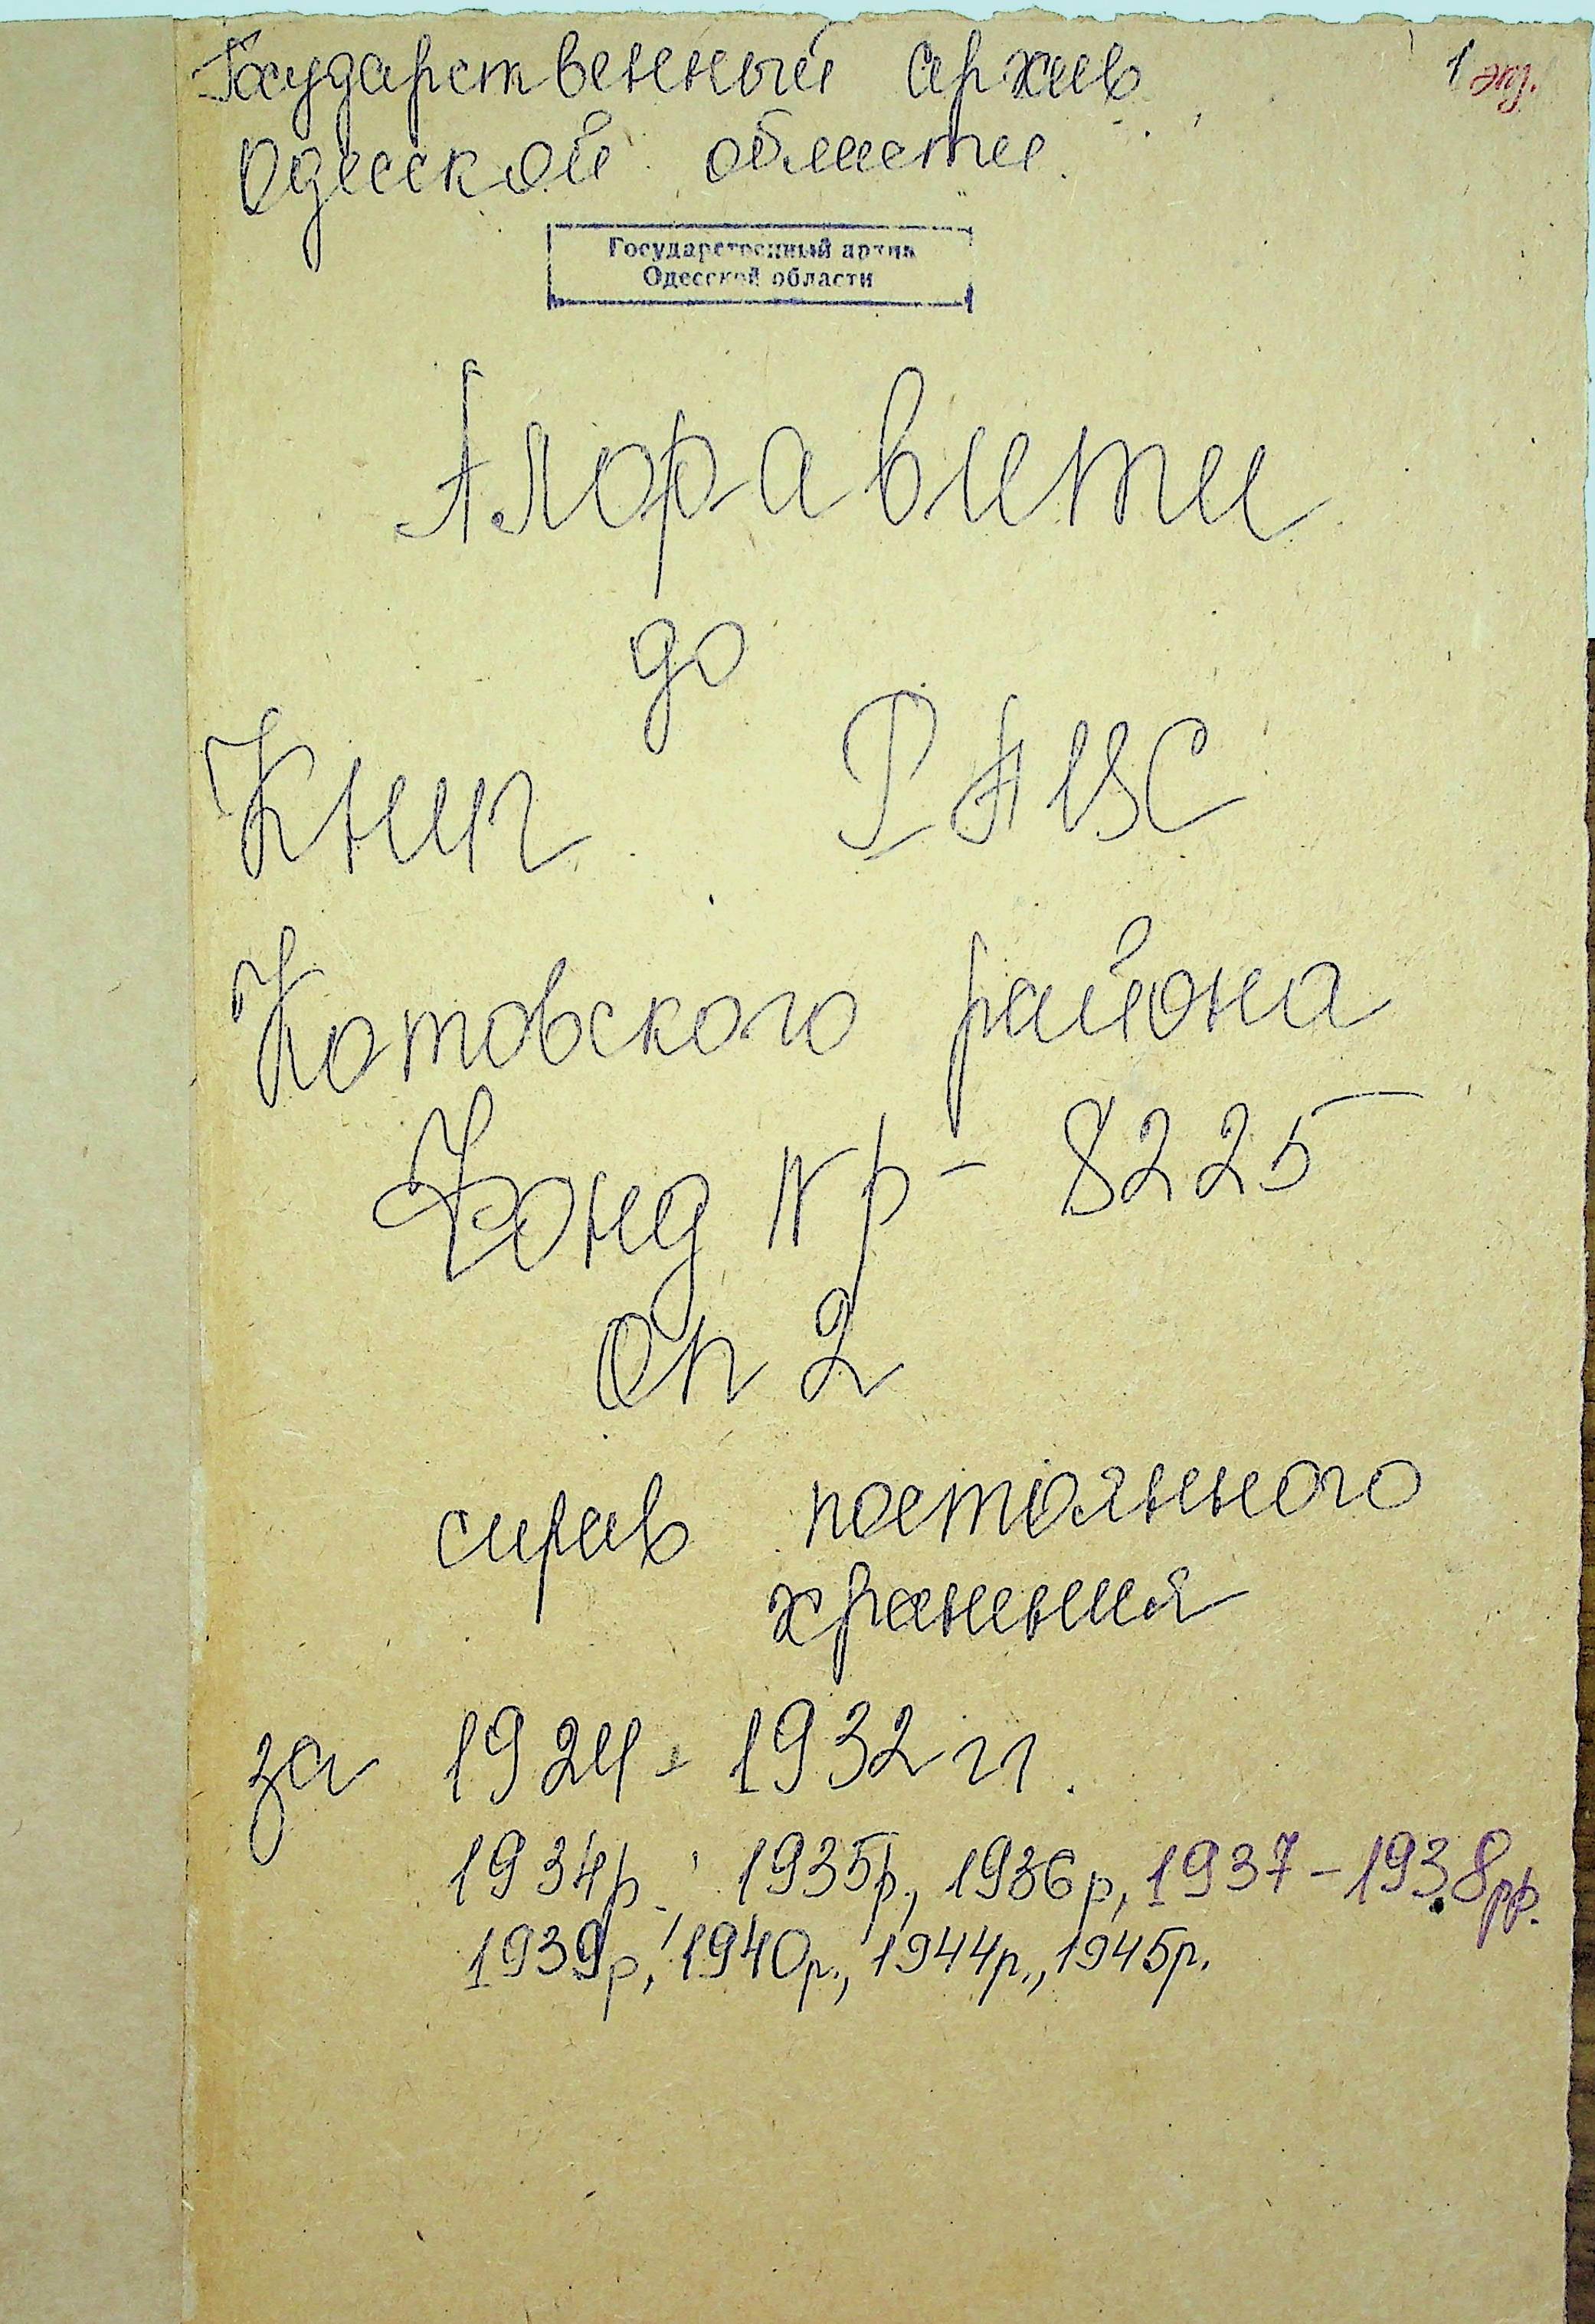 Государственный архив
1 экз.
Одесской области
Государственный архив
Одесской области
Алфавиты
до
Книг РАЦС
Котовского района
Фонд N р - 8225
Оп 2
справ постоянного
хранения
за 1924 - 1932 гг.
1934р., 1935р., 1936р, 1937-1938рр.
1939р, 1940р., 1944р., 1945р.